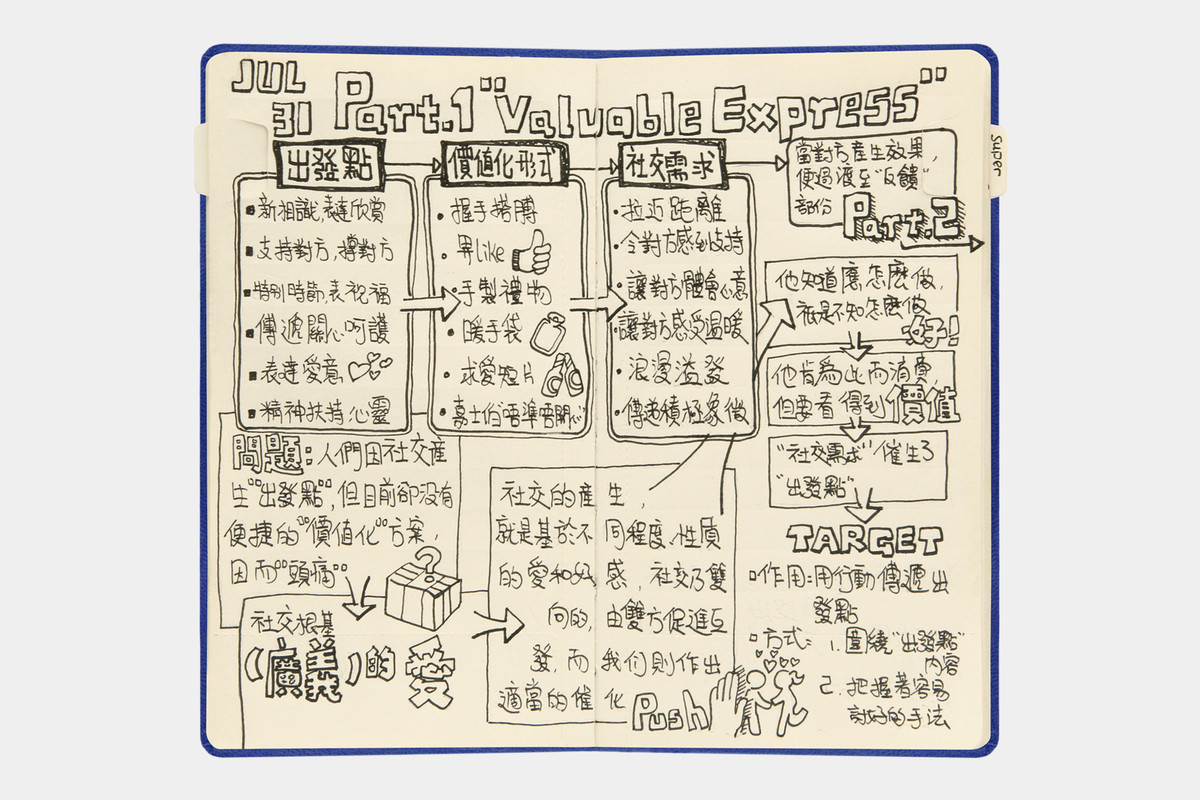 JUL
31
Part.1 "Valuable Express"
Super
出發點
新相識,表達欣賞
支持對方,撐對方
特別時節,表祝福
傳遞關心呵護
表達愛意
精神扶持心靈
價值化形式
握手搭膊
畀like
手製禮物
暖手袋
求愛短片
嘉士伯唔準唔開心
社交需求
拉近距離
令對方感到支持
讓對方體會心意
讓對方感受溫暖
浪漫溢發
傳遞積極象徵
當對方產生效果,
便過渡至"反饋"
部份
Part.2
他知道應怎麼做,
祇是不知怎麼做
好!
他肯為此而消費,
但要看得到價值
"社交需求"催生了
"出發點"
TARGET
作用:用行動傳遞出
發點
方式: 1. 圍繞"出發點"
內容
2. 把握著容易
討好的手法
問題:人們因社交產
生"出發點",但目前卻沒有
便捷的"價值化"方案,
因而"頭痛"
?
社交根基
(廣義)的 愛
社交的產生,
就是基於不同程度、性質
的愛和好感,社交乃雙
向的,由雙方促進互
發,而我們則作出
適當的催化
Push